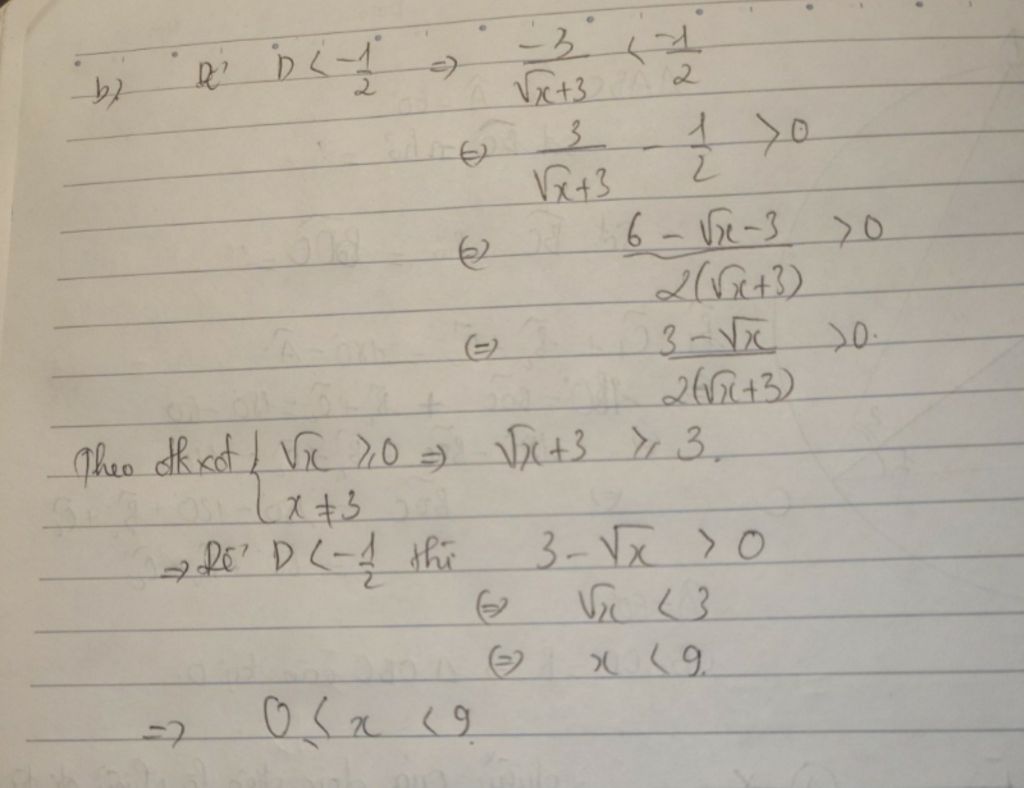 b) Để D < -1/2 => -3/(√x+3) < -1/2
<=> 3/(√x+3) - 1/2 > 0
<=> (6 - √x - 3)/(2(√x+3)) > 0
<=> (3 - √x)/(2(√x+3)) > 0.
Theo đkxđ { √x ≥ 0 => √x+3 ≥ 3.
x ≠ 3
=> Để D < -1/2 thì 3 - √x > 0
<=> √x < 3
<=> x < 9.
=> 0 ≤ x < 9